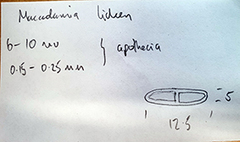 Macadamia lichen
6-10
0.15 - 0.25 mm
} apothecia
= 5
12.5